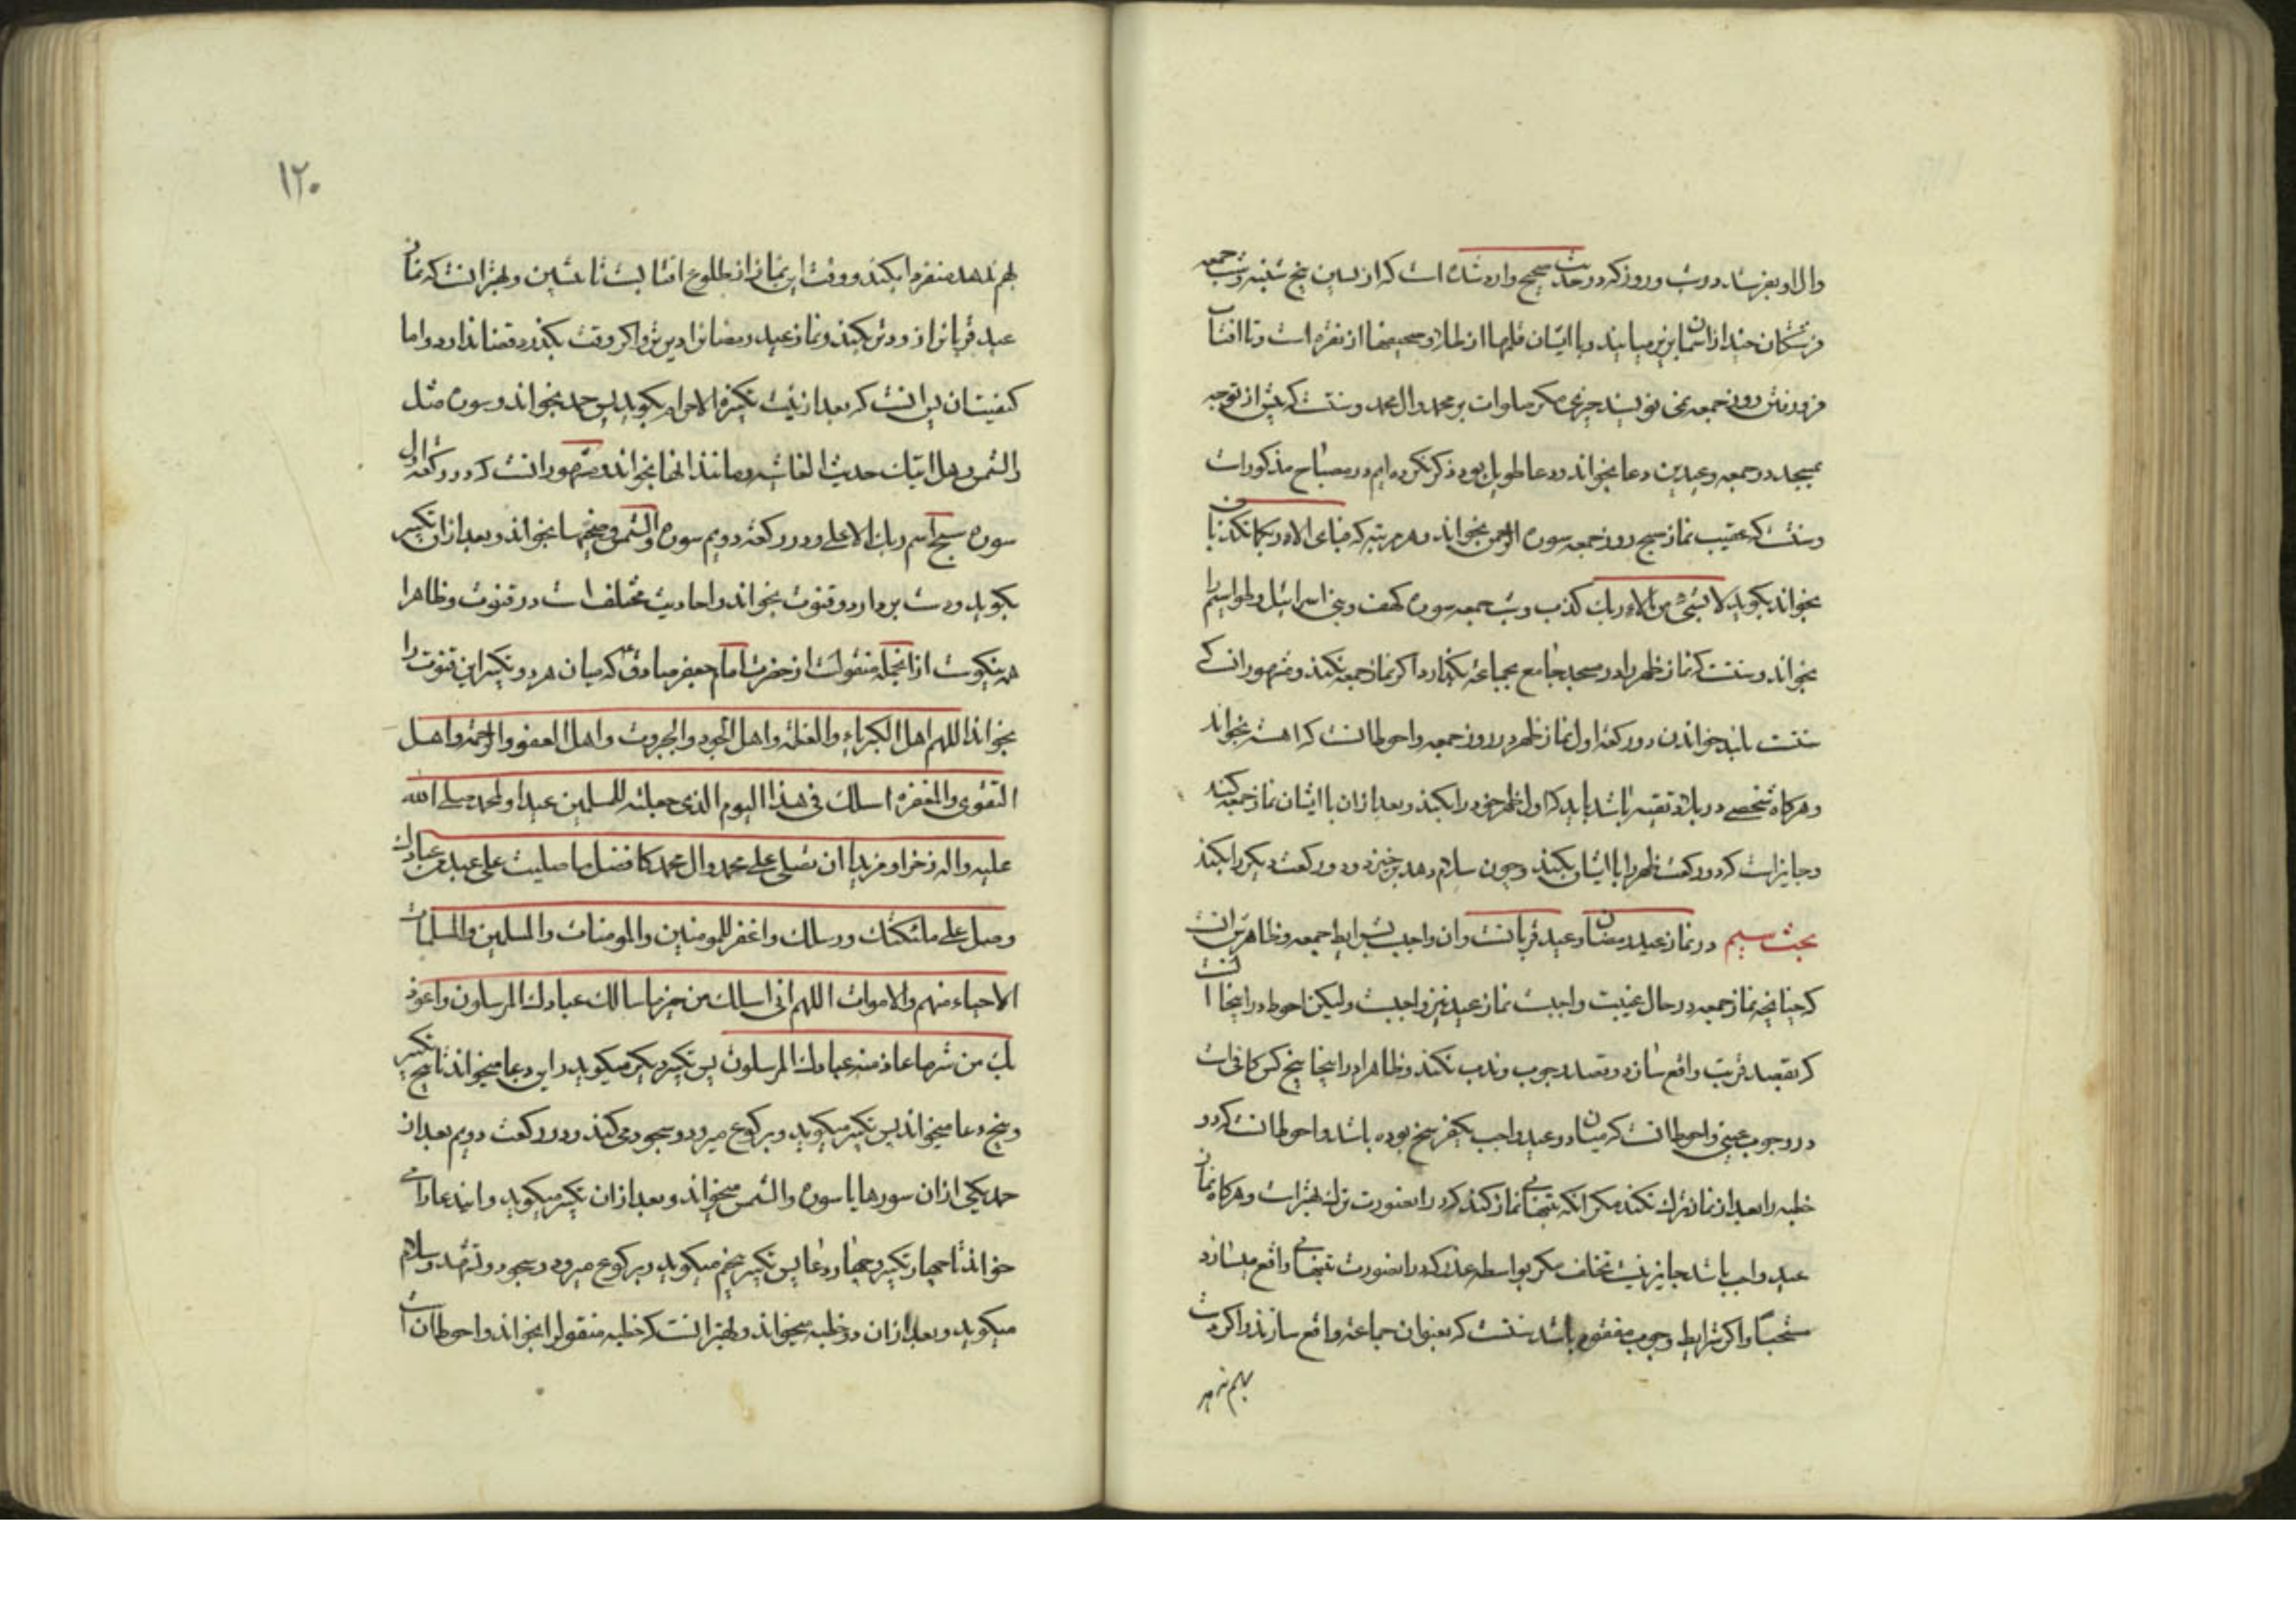 وال او بفرستد در شب و روز که در حدیث صحیح وارد شده است که از پسین پنج شنبه و شب جمعه
فرشتکان چند از آسمان بزیر میایند و با ایشان قلمها از طلا و صحیفها از نقره است و تا افتاب
فرو رفتن روز جمعه نمی نویسند چیزی مکر صلوات بر محمد و ال محمد و سنتست که پیش از توجه
بمسجد در جمعه و عیدین دعا بخواند و دعا طویل بود ذکر نکرده ایم در مصباح مذکور است
و سنتست که عقیب نماز صبح روز جمعه سوره الرحمن بخواند و هر مرتبه که فبای الاء ربکما تکذبان
بخواند بکوید لا بشیء من الاءک رب اکذب و شب جمعه سوره کهف و بنی اسرائیل و طواسیم را
بخواند و سنتست که نماز ظهر را در مسجد جامع بجماعه بکذارد اکر نماز جمعه نکند و مشهور انست که
سنتست بلند خواندن دو رکعه اول نماز ظهر در روز جمعه و احوط انست که اهسته بخواند
و هرکاه شخصی در بلاد تقیه باشد باید که اول ظهر خود را بکند و بعد از ان با ایشان نماز جمعه کند
و جایز است که دو رکعت ظهر را با ایشان بکند و چون سلام دهد برخیزد و دو رکعت دیکر را بکند
بحث سیم در نماز عید رمضان و عید قربانست و ان واجبست بشرایط جمعه و ظاهرش انست
که چنانچه نماز جمعه در حال غیبت واجبست نماز عید نیز واجبست ولیکن احوط در اینجا انست
که بقصد قربت واقع سازد و قصد وجوب و ندب نکند و ظاهرا در اینجا پنج کس کافی است
در وجوب عینی و احوط انست که میان دو عید واجب یکفرسخ بوده باشد و احوط انست که دو
خطبه را بعد از نماز ترک نکند مکر انکه بتنهایی نماز کند که در اینصورت ترک بهتر است و هرکاه نماز
عید واجب باشد جایز نیست تخلف مکر بواسطه عذر که در اینصورت بتنهایی واقع میسازد
مستحبا و اکر شرایط وجوب مفقود باشد سنتست که بعنوان جماعه واقع سازند و اکر دست
بهم ندهد
۱۲۰
بهم ندهد منفردا بکند و وقت این نماز از طلوع افتابست تا پیشین و بهتر انست که نماز
عید قربانرا زودتر بکند و نماز عید رمضانرا دیرتر و اکر وقت بکذرد قضا ندارد و اما
کیفیتشان پس انست که بعد از نیت تکبیرة الاحرام بکوید پس حمد بخواند و سوره مثل
والشمس و هل اتیک حدیث الغاشیه و مانند انها بخواند و مشهور انست که در رکعه اول
سوره سبح اسم ربک الاعلی و در رکعه دویم سوره والشمس و ضحیها بخواند و بعد از ان تکبیر
بکوید و دست بردارد و قنوت بخواند و احادیث مختلف است در قنوت و ظاهرا
همه نیکوست از انجمله منقولست از حضرت امام جعفر صادق ع که میان هر دو تکبیر این قنوت را
بخواند اللهم اهل الکبریاء و العظمه و اهل الجود و الجبروت و اهل العفو و الرحمة و اهل
التقوی و المغفره اسئلک فی هذا الیوم الذی جعلته للمسلمین عیدا و لمحمد صلی الله
علیه و اله ذخرا و مزیدا ان تصلی علی محمد و ال محمد کافضل ما صلیت علی عبد من عبادک
و صل علی ملئکتک و رسلک و اغفر للمومنین و المومنات و المسلمین و المسلمات
الاحیاء منهم و الاموات اللهم انی اسئلک من خیر ما سالک عبادک المرسلون و اعوذ
بک من شر ما عاذ منه عبادک المرسلون پس تکبیر دیکر میکوید و این دعا میخواند تا پنج تکبیر
و پنج دعا میخواند پس تکبیر میکوید و برکوع میرود و سجود می کند و در رکعت دویم بعد از
حمد یکی از ان سورها یا سوره والشمس میخواند و بعد از ان تکبیر میکوید و این دعا را می
خواند تا چهار تکبیر و چهار دعا پس تکبیر پنجم میکوید و برکوع میرود و سجود و تشهد و سلام
میکوید و بعد از ان دو خطبه میخواند و بهتر انست که خطبه منقول را بخواند و احوط ان است